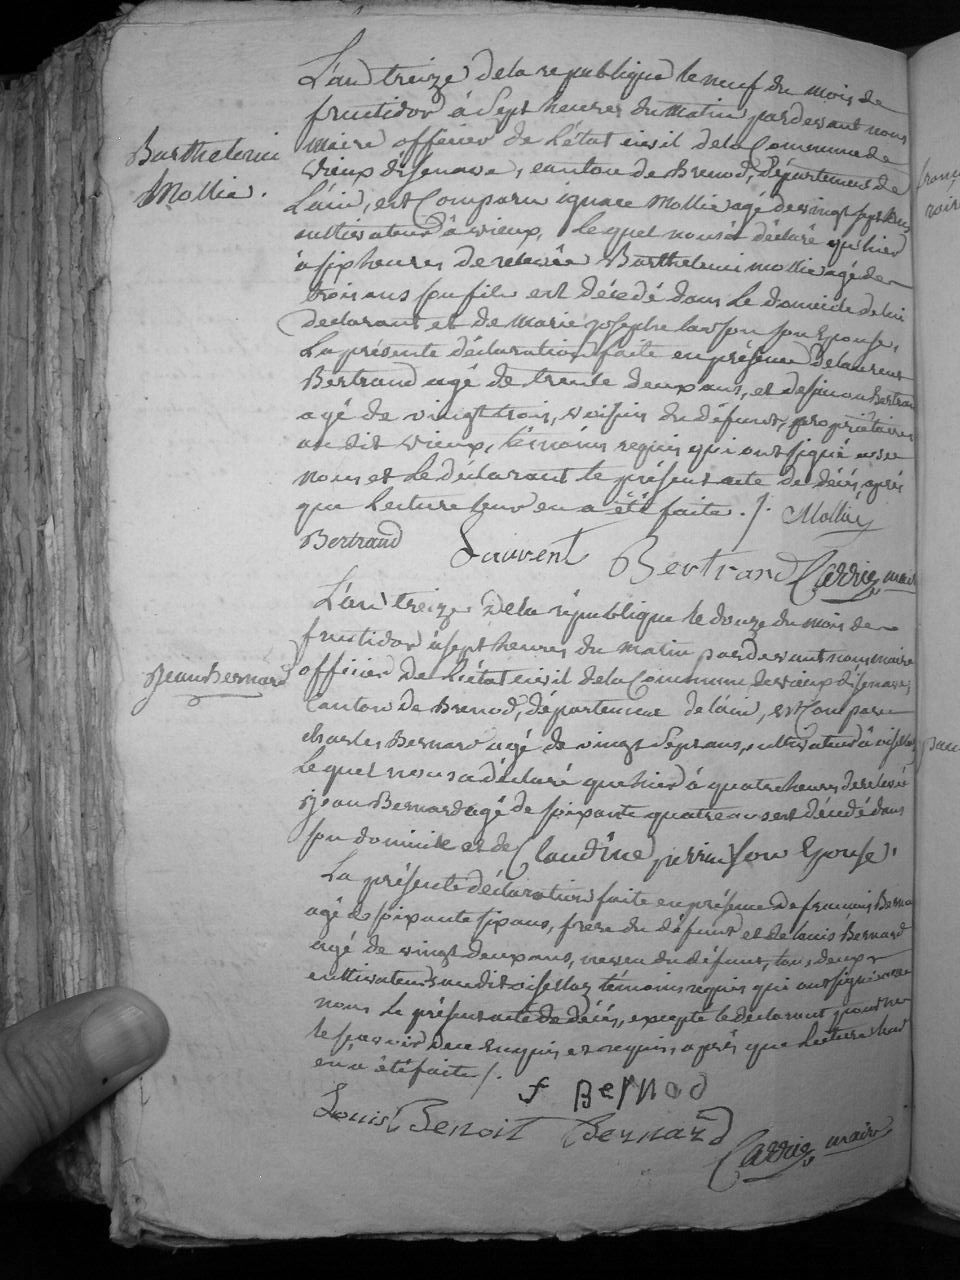 L'an treize de la republique le neuf du mois de
fructidor à sept heures du matin pardevant nous
maire officier de L'état civil de la Commune de
vieux disenave, canton de Brenod, département de
L'ain, est Comparu ignace Mollie agé de vingt sept ans
cultivateur à vieux, Lequel nous a déclaré qu'hier
à six heures de relevée Barthelemi mollie agé de
trois ans son fils est décédé dans le domicile de lui
declarant et de Marie josephe son Epouse,
La présente déclaration faite en présence de laurent
Bertrand agé de trente deux ans, et de simon Bertrand
agé de vingt trois, voisins du défunt, propriétaires
au dit vieux, témoins requis qui ont signé avec
nous et le déclarant le présent acte de décès, après
que Lecture leur en a été faite . /. Mollié
Bertrand Laurent Bertrand Carrier maire
Barthelemi
Mollie .
L'an treize de la république le douze du mois de
fructidor à sept heures du matin pardevant nous maire
officier de L'état civil de la Commune de vieux disenave,
Canton de Brenod, département de l'ain, est Comparu
charles Bernard agé de vingt sept ans, cultivateur à
Lequel nous a déclaré que hier à quatre heures de relevée
jean Bernard agé de soixante quatre ans est décédé dans
son domicile et de Claudine perrin son Epouse,
La présente déclaration faite en présence de francois Bernard
agé de soixante six ans, frere du défunt et de louis Bernard
agé de vingt deux ans, neveu du défunt, tous deux
cultivateurs audit témoins requis qui ont signé avec
nous Le présent acte de décès, excepté le declarant pour ne
le sçavoir de ce enquis et requis, après que Lecture leur
en a été faite /.
f Bernod
Louis Benoit Bernard
Carrier maire
Jean Bernard